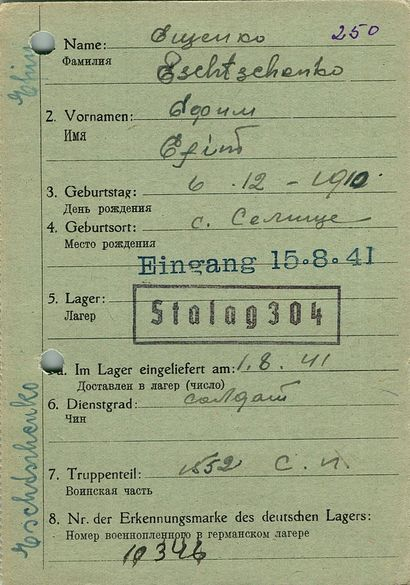 250
Name: Ещенко
Фамилия Eschtschenko
2. Vornamen: Ефим
Имя Efim
3. Geburtstag: 6.12-1910
День рождения
4. Geburtsort: с. Селище
Место рождения
Eingang 15.8.41
5. Lager: Stalag 304
Лагер
a. Im Lager eingeliefert am: 1.8.41
Доставлен в лагер (число)
6. Dienstgrad: солдат
Чин
7. Truppenteil: с.п.
Воинская часть
8. Nr. der Erkennungsmarke des deutschen Lagers:
Номер военнопленного в германском лагере
Eschtschenko